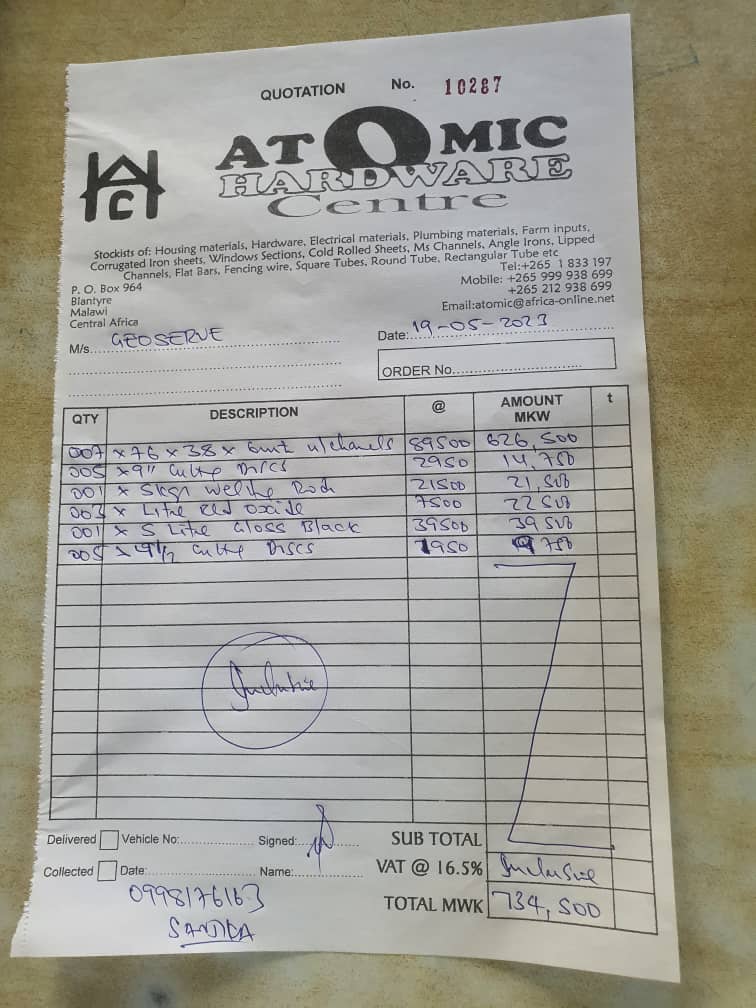 QUOTATION No. 10287
ATOMIC
HARDWARE
Centre
HAC
Stockists of: Housing materials, Hardware, Electrical materials, Plumbing materials, Farm inputs,
Corrugated Iron sheets, Windows Sections, Cold Rolled Sheets, Ms Channels, Angle Irons, Lipped
Channels, Flat Bars, Fencing wire, Square Tubes, Round Tube, Rectangular Tube etc
P. O. Box 964
Blantyre
Malawi
Central Africa
Tel:+265 1 833 197
Mobile: +265 999 938 699
+265 212 938 699
Email:atomic@africa-online.net
M/s. GEOSERVE
Date: 19-05-2023
ORDER No.
QTY DESCRIPTION @ AMOUNT MKW t
007 x 76 x 38 x 6mt u/channels 89500 626,500
005 x 9" Cutting Discs 2950 14,750
001 x 5kgs Welding Rod 21500 21,500
003 x Litre Red Oxide 7500 22500
001 x 5 Litre Gloss Black 39500 39500
005 x 4 1/2 Cutting Discs 1950 9750
Inclusive
Delivered Vehicle No: Signed:
Collected Date: Name:
0998176163
SUB TOTAL
VAT @ 16.5% Inclusive
TOTAL MWK 734,500